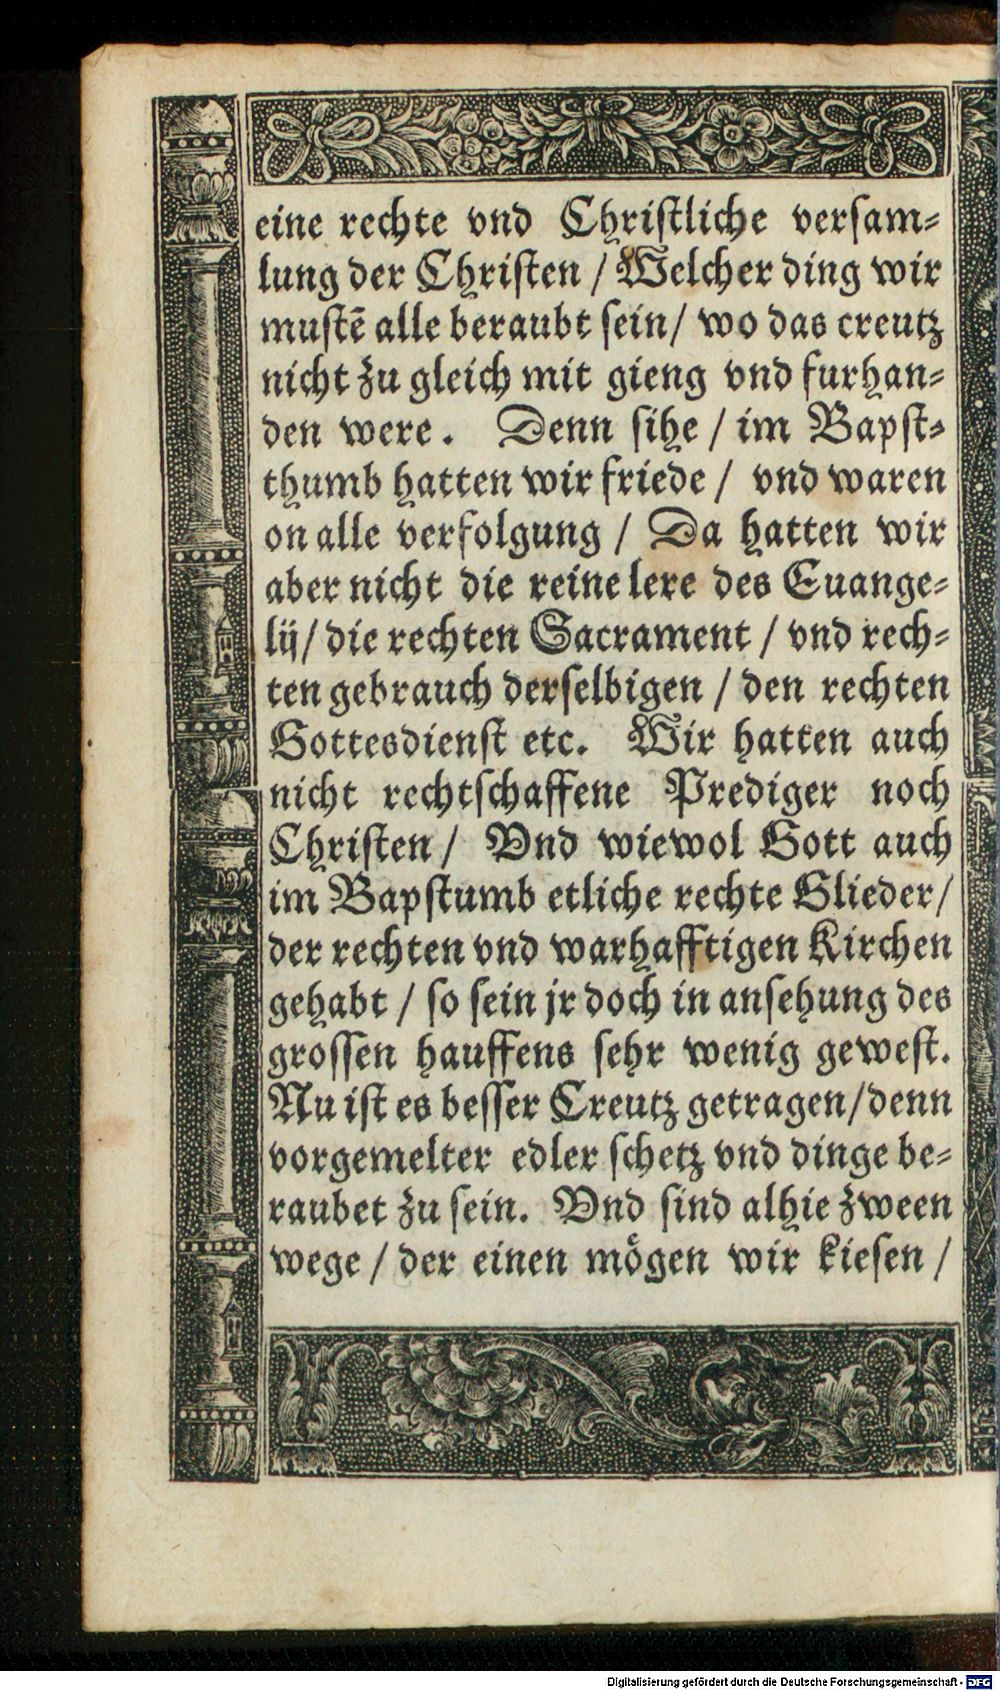 eine rechte vnd Christliche versam⸗
lung der Christen / Welcher ding wir
mustē alle beraubt sein/ wo das creutz
nicht zu gleich mit gieng vnd furhan⸗
den were. Denn sihe / im Bapst⸗
thumb hatten wir friede / vnd waren
on alle verfolgung / Da hatten wir
aber nicht die reine lere des Euange⸗
lij/ die rechten Sacrament / vnd rech⸗
ten gebrauch derselbigen / den rechten
Gottesdienst etc. Wir hatten auch
nicht rechtschaffene Prediger noch
Christen / Vnd wiewol Gott auch
im Bapstumb etliche rechte Glieder/
der rechten vnd warhafftigen Kirchen
gehabt / so sein jr doch in ansehung des
grossen hauffens sehr wenig gewest.
Nu ist es besser Creutz getragen/denn
vorgemelter edler schetz vnd dinge be⸗
raubet zu sein. Vnd sind alhie zween
wege / der einen mögen wir kiesen /
Digitalisierung gefördert durch die Deutsche Forschungsgemeinschaft - DFG